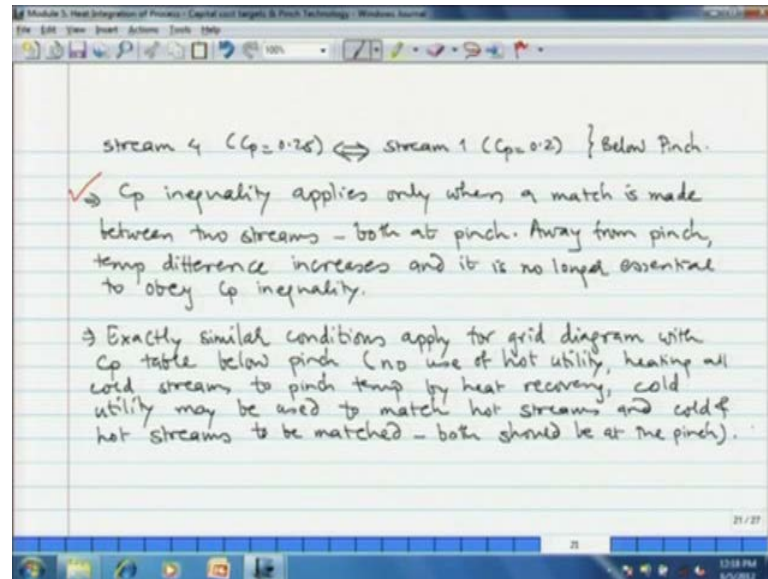 Module 5: Heat Integration of Process - Capital cost targets & Pinch Technology - Windows Journal
File Edit View Insert Actions Tools Help
100%
stream 4 (Cp = 0.25) ⇔ stream 1 (Cp = 0.2) } Below Pinch.
⇒ Cp inequality applies only when a match is made
between two streams - both at pinch. Away from pinch,
temp difference increases and it is no longer essential
to obey Cp inequality.
⇒ Exactly similar conditions apply for grid diagram with
Cp table below pinch (no use of hot utility, heating all
cold streams to pinch temp by heat recovery, cold
utility may be used to match hot streams and cold &
hot streams to be matched - both should be at the pinch).
21 / 27
21
12:58 PM
6/5/2012